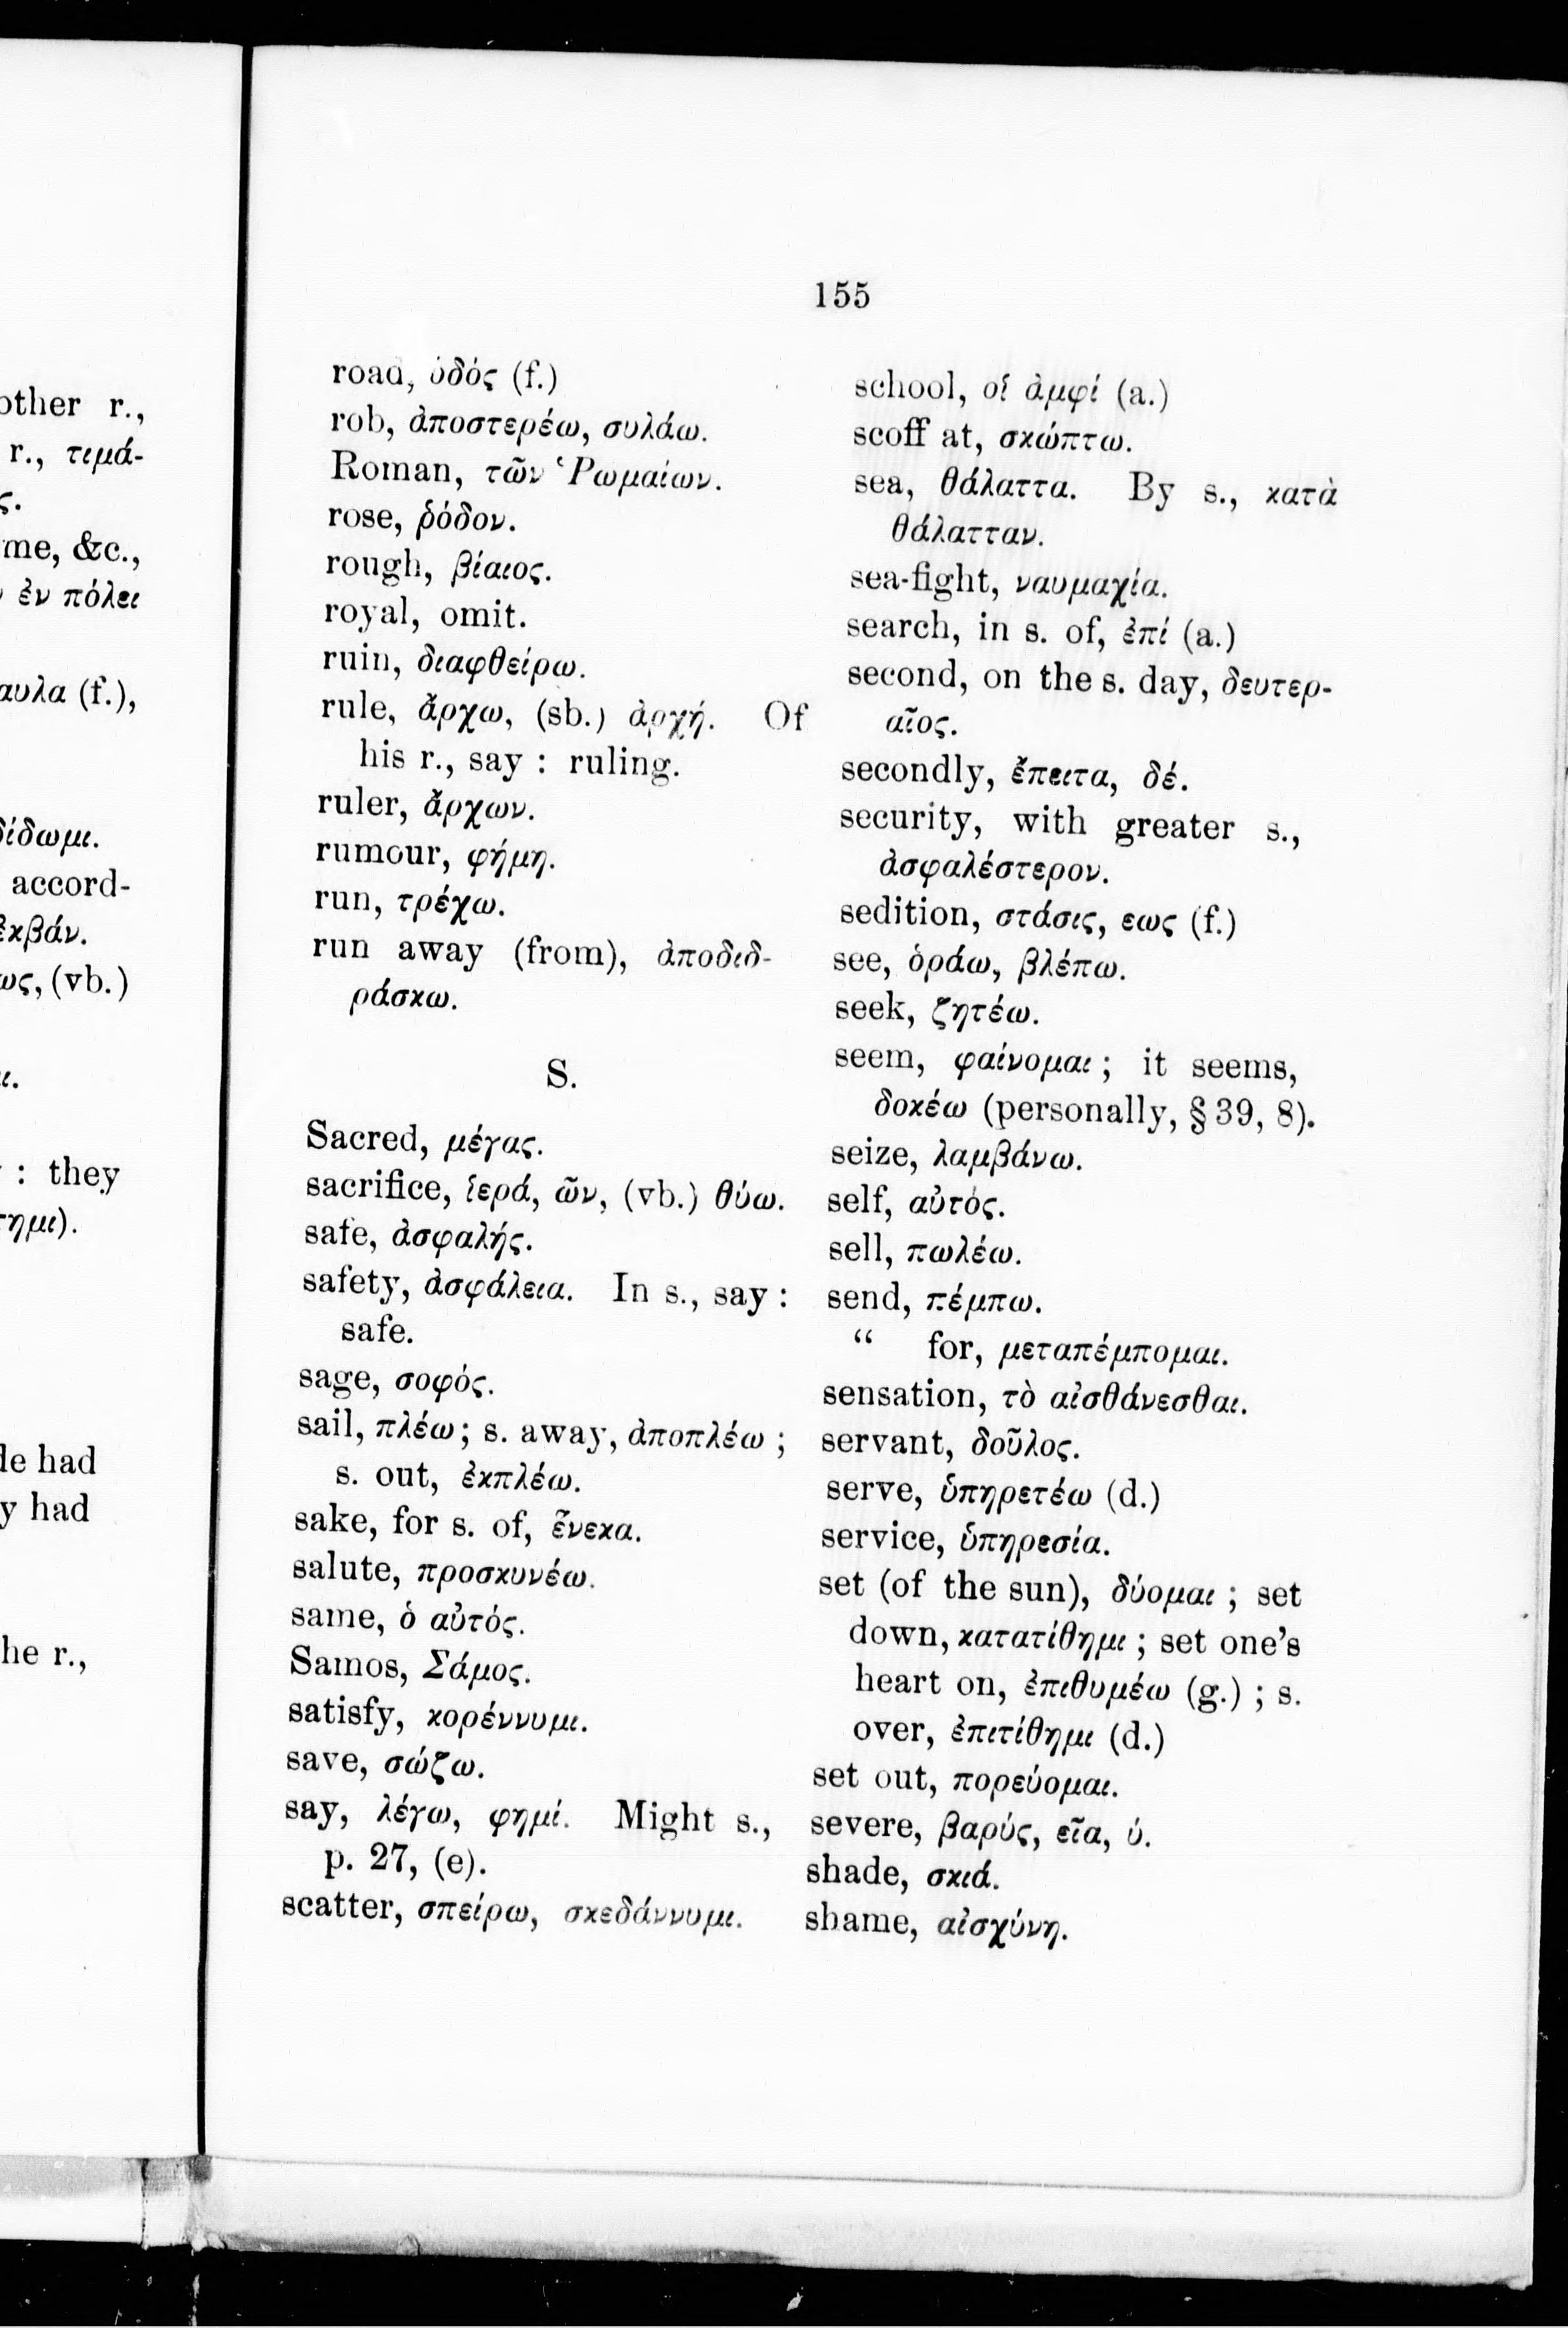 other r.,
r., τιμά-
ς.
me, &c.,
ἐν πόλει
αυλα (f.),
δίδωμι.
accord-
ἐκβάν.
ως, (vb.)
ι.
: they
τημι).
de had
y had
he r.,
155
road, ὁδός (f.)
rob, ἀποστερέω, συλάω.
Roman, τῶν Ῥωμαίων.
rose, ῥόδον.
rough, βίαιος.
royal, omit.
ruin, διαφθείρω.
rule, ἄρχω, (sb.) ἀρχή. Of
his r., say : ruling.
ruler, ἄρχων.
rumour, φήμη.
run, τρέχω.
run away (from), ἀποδιδ-
ράσκω.
S.
Sacred, μέγας.
sacrifice, ἱερά, ῶν, (vb.) θύω.
safe, ἀσφαλής.
safety, ἀσφάλεια. In s., say :
safe.
sage, σοφός.
sail, πλέω ; s. away, ἀποπλέω ;
s. out, ἐκπλέω.
sake, for s. of, ἕνεκα.
salute, προσκυνέω.
same, ὁ αὐτός.
Samos, Σάμος.
satisfy, κορέννυμι.
save, σώζω.
say, λέγω, φημί. Might s.,
p. 27, (e).
scatter, σπείρω, σκεδάννυμι.
school, οἱ ἀμφί (a.)
scoff at, σκώπτω.
sea, θάλαττα. By s., κατὰ
θάλατταν.
sea-fight, ναυμαχία.
search, in s. of, ἐπί (a.)
second, on the s. day, δευτερ-
αῖος.
secondly, ἔπειτα, δέ.
security, with greater s.,
ἀσφαλέστερον.
sedition, στάσις, εως (f.)
see, ὁράω, βλέπω.
seek, ζητέω.
seem, φαίνομαι ; it seems,
δοκέω (personally, § 39, 8).
seize, λαμβάνω.
self, αὐτός.
sell, πωλέω.
send, πέμπω.
“ for, μεταπέμπομαι.
sensation, τὸ αἰσθάνεσθαι.
servant, δοῦλος.
serve, ὑπηρετέω (d.)
service, ὑπηρεσία.
set (of the sun), δύομαι ; set
down, κατατίθημι ; set one's
heart on, ἐπιθυμέω (g.) ; s.
over, ἐπιτίθημι (d.)
set out, πορεύομαι.
severe, βαρύς, εῖα, ύ.
shade, σκιά.
shame, αἰσχύνη.